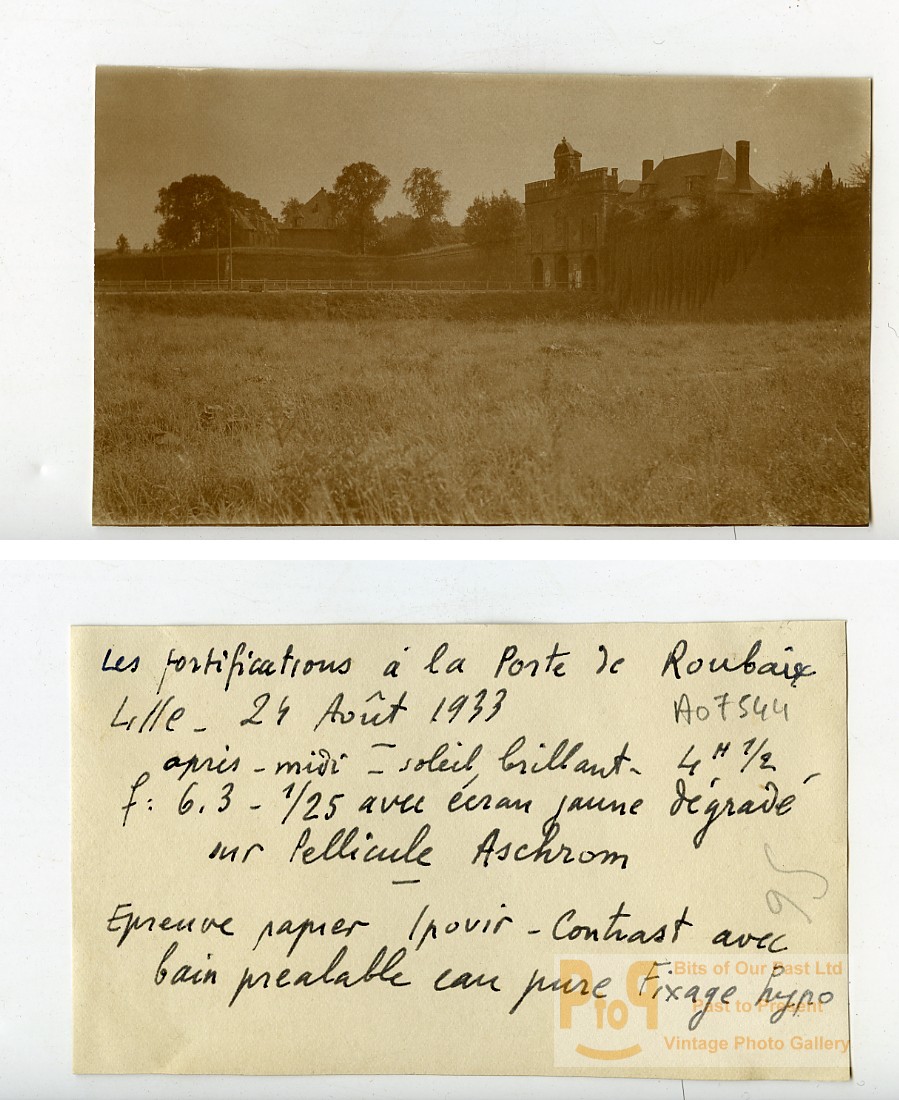 Les fortifications à la Porte de Roubaix
Lille - 24 Août 1933
A07544
après-midi - soleil brillant - 4 H 1/2
f: 6.3 - 1/25 avec écran jaune dégradé
sur Pellicule Aschrom
95
Epreuve papier Ipovir - Contrast avec
bain prealable eau pure Fixage hypo
PtoP
Bits of Our Past Ltd
Past to Present
Vintage Photo Gallery